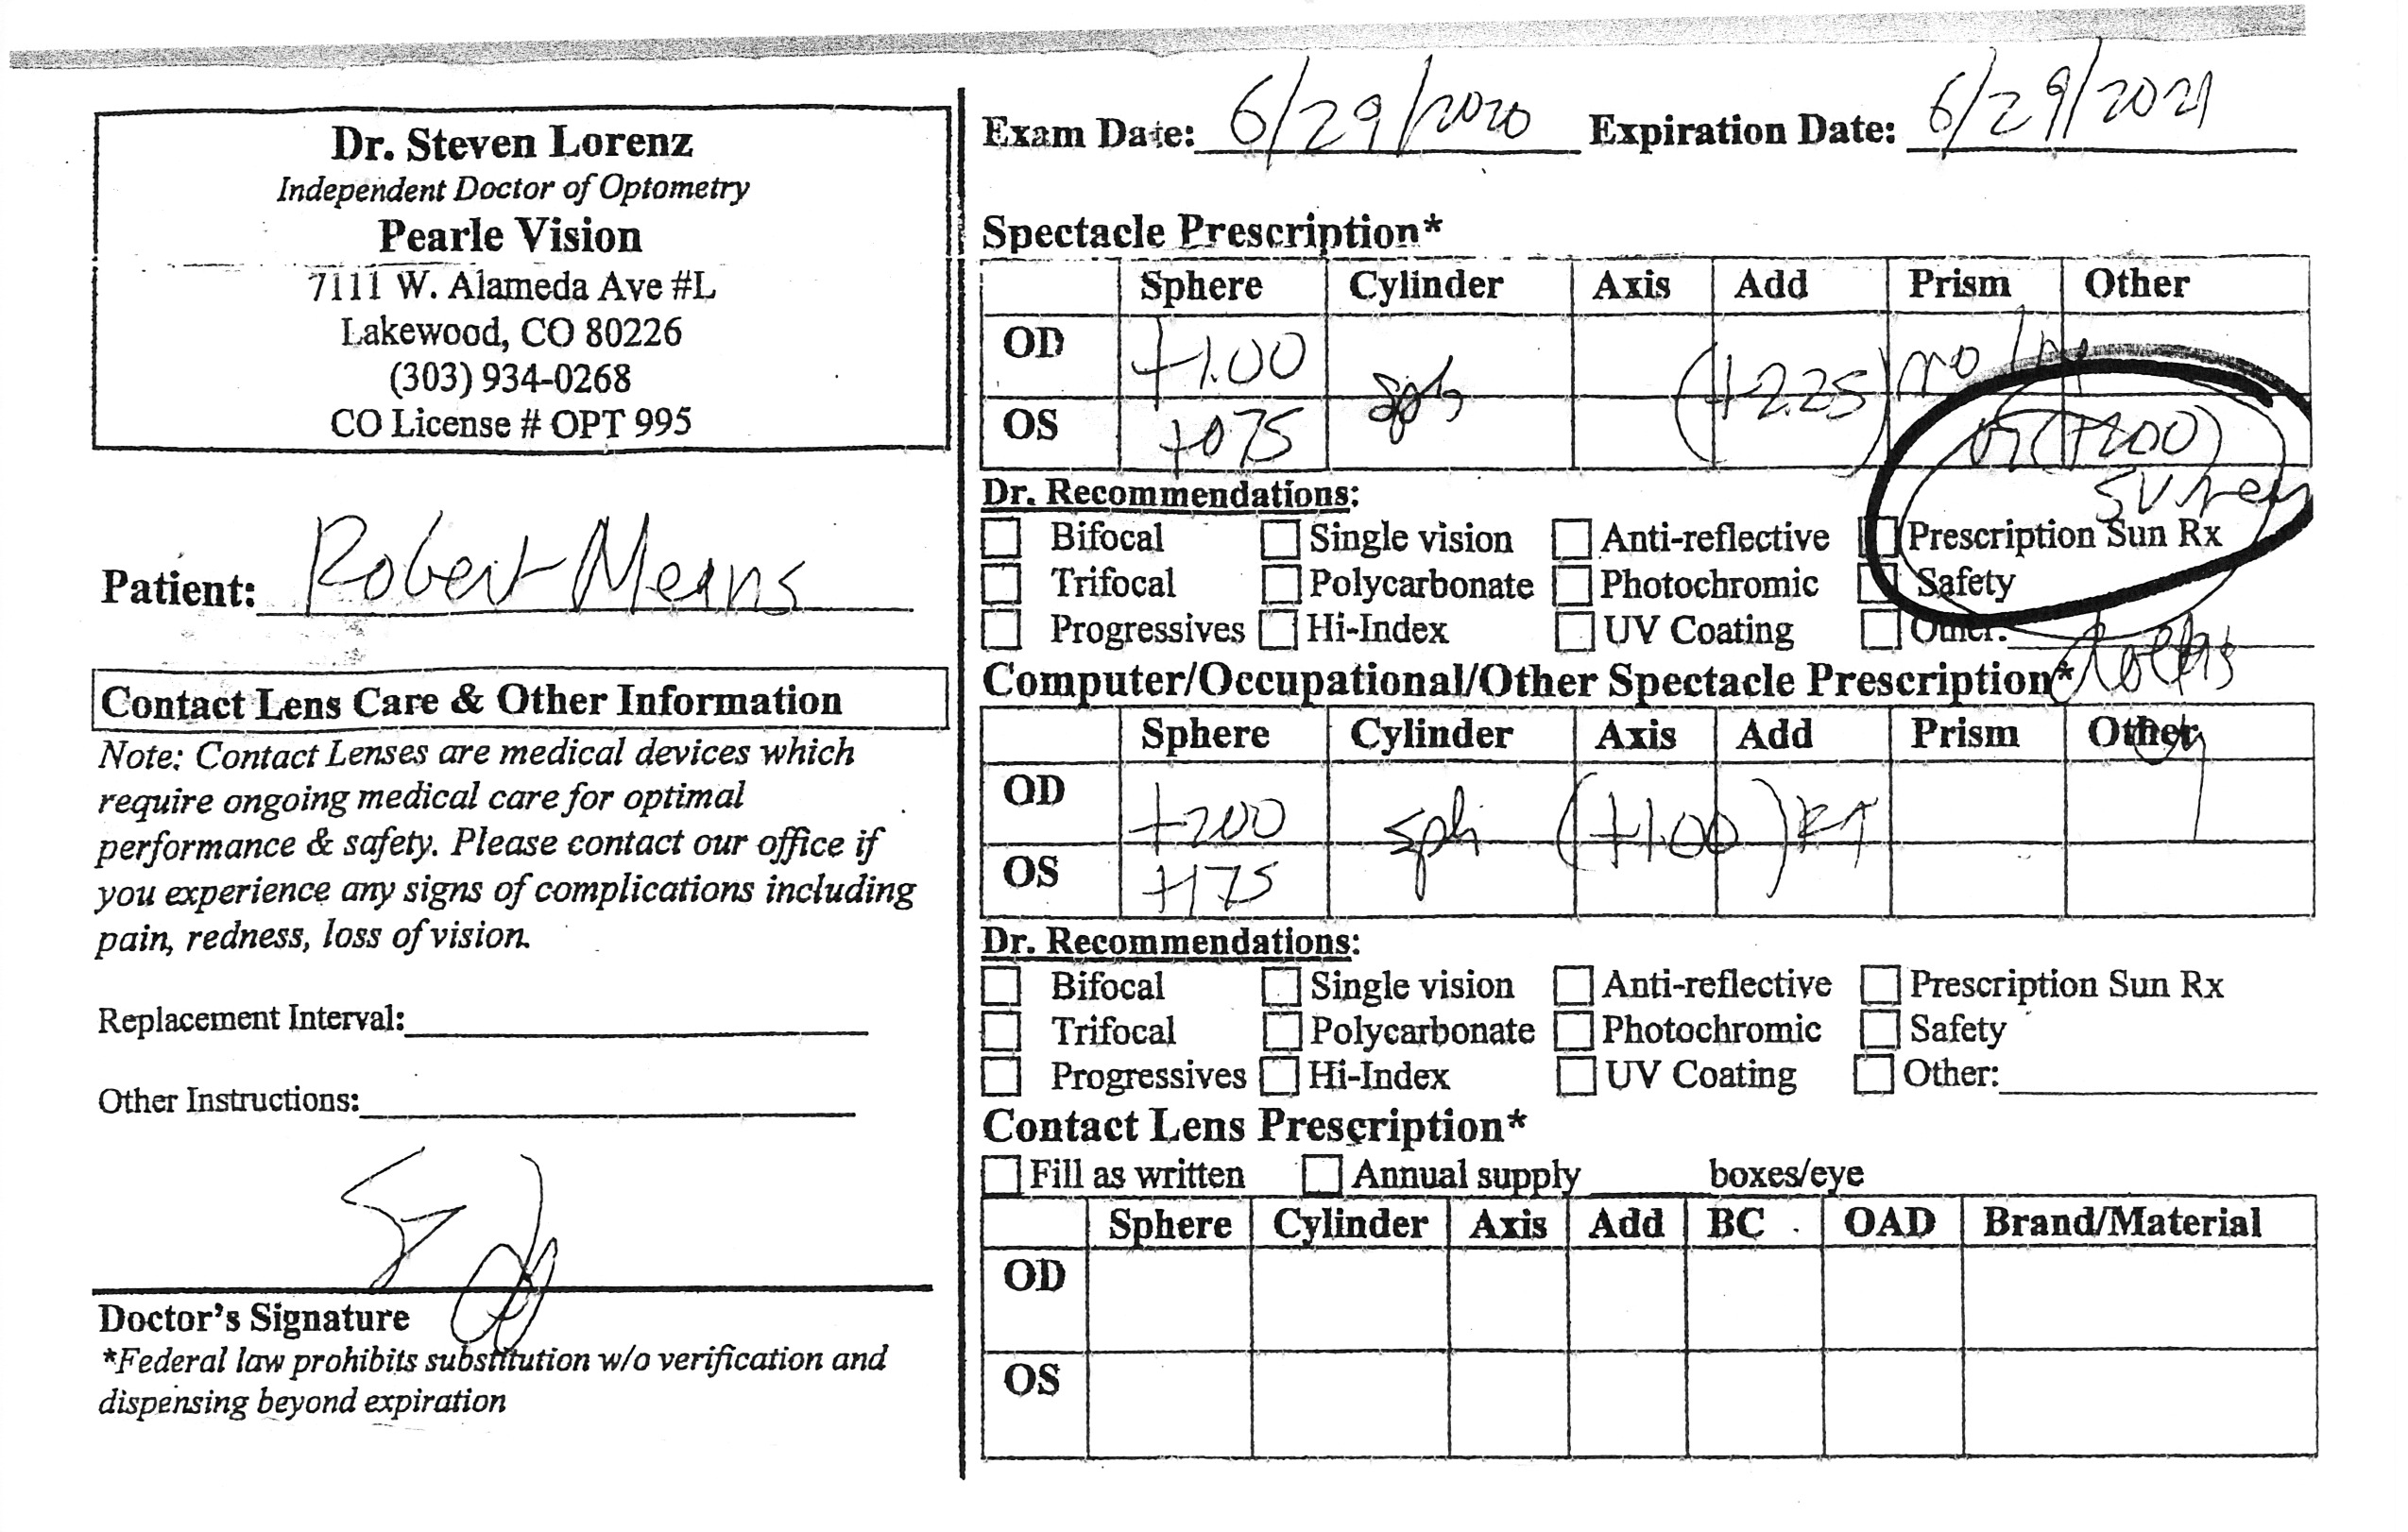 Dr. Steven Lorenz
Independent Doctor of Optometry
Pearle Vision
7111 W. Alameda Ave #L
Lakewood, CO 80226
(303) 934-0268
CO License # OPT 995
Patient: Robert Means
Contact Lens Care & Other Information
Note: Contact Lenses are medical devices which
require ongoing medical care for optimal
performance & safety. Please contact our office if
you experience any signs of complications including
pain, redness, loss of vision.
Replacement Interval:
Other Instructions:
Doctor's Signature
*Federal law prohibits substitution w/o verification and
dispensing beyond expiration
Exam Date: 6/29/2020 Expiration Date: 6/29/2021
Spectacle Prescription*
Sphere Cylinder Axis Add Prism Other
OD +1.00 sph (+2.25) no
OS +075 (+200)
SV
Dr. Recommendations:
Bifocal Single vision Anti-reflective Prescription Sun Rx
Trifocal Polycarbonate Photochromic Safety
Progressives Hi-Index UV Coating Other:
Computer/Occupational/Other Spectacle Prescription*
Sphere Cylinder Axis Add Prism Other
OD +200 sph (+1.00)
OS +175
Dr. Recommendations:
Bifocal Single vision Anti-reflective Prescription Sun Rx
Trifocal Polycarbonate Photochromic Safety
Progressives Hi-Index UV Coating Other:
Contact Lens Prescription*
Fill as written Annual supply boxes/eye
Sphere Cylinder Axis Add BC OAD Brand/Material
OD
OS